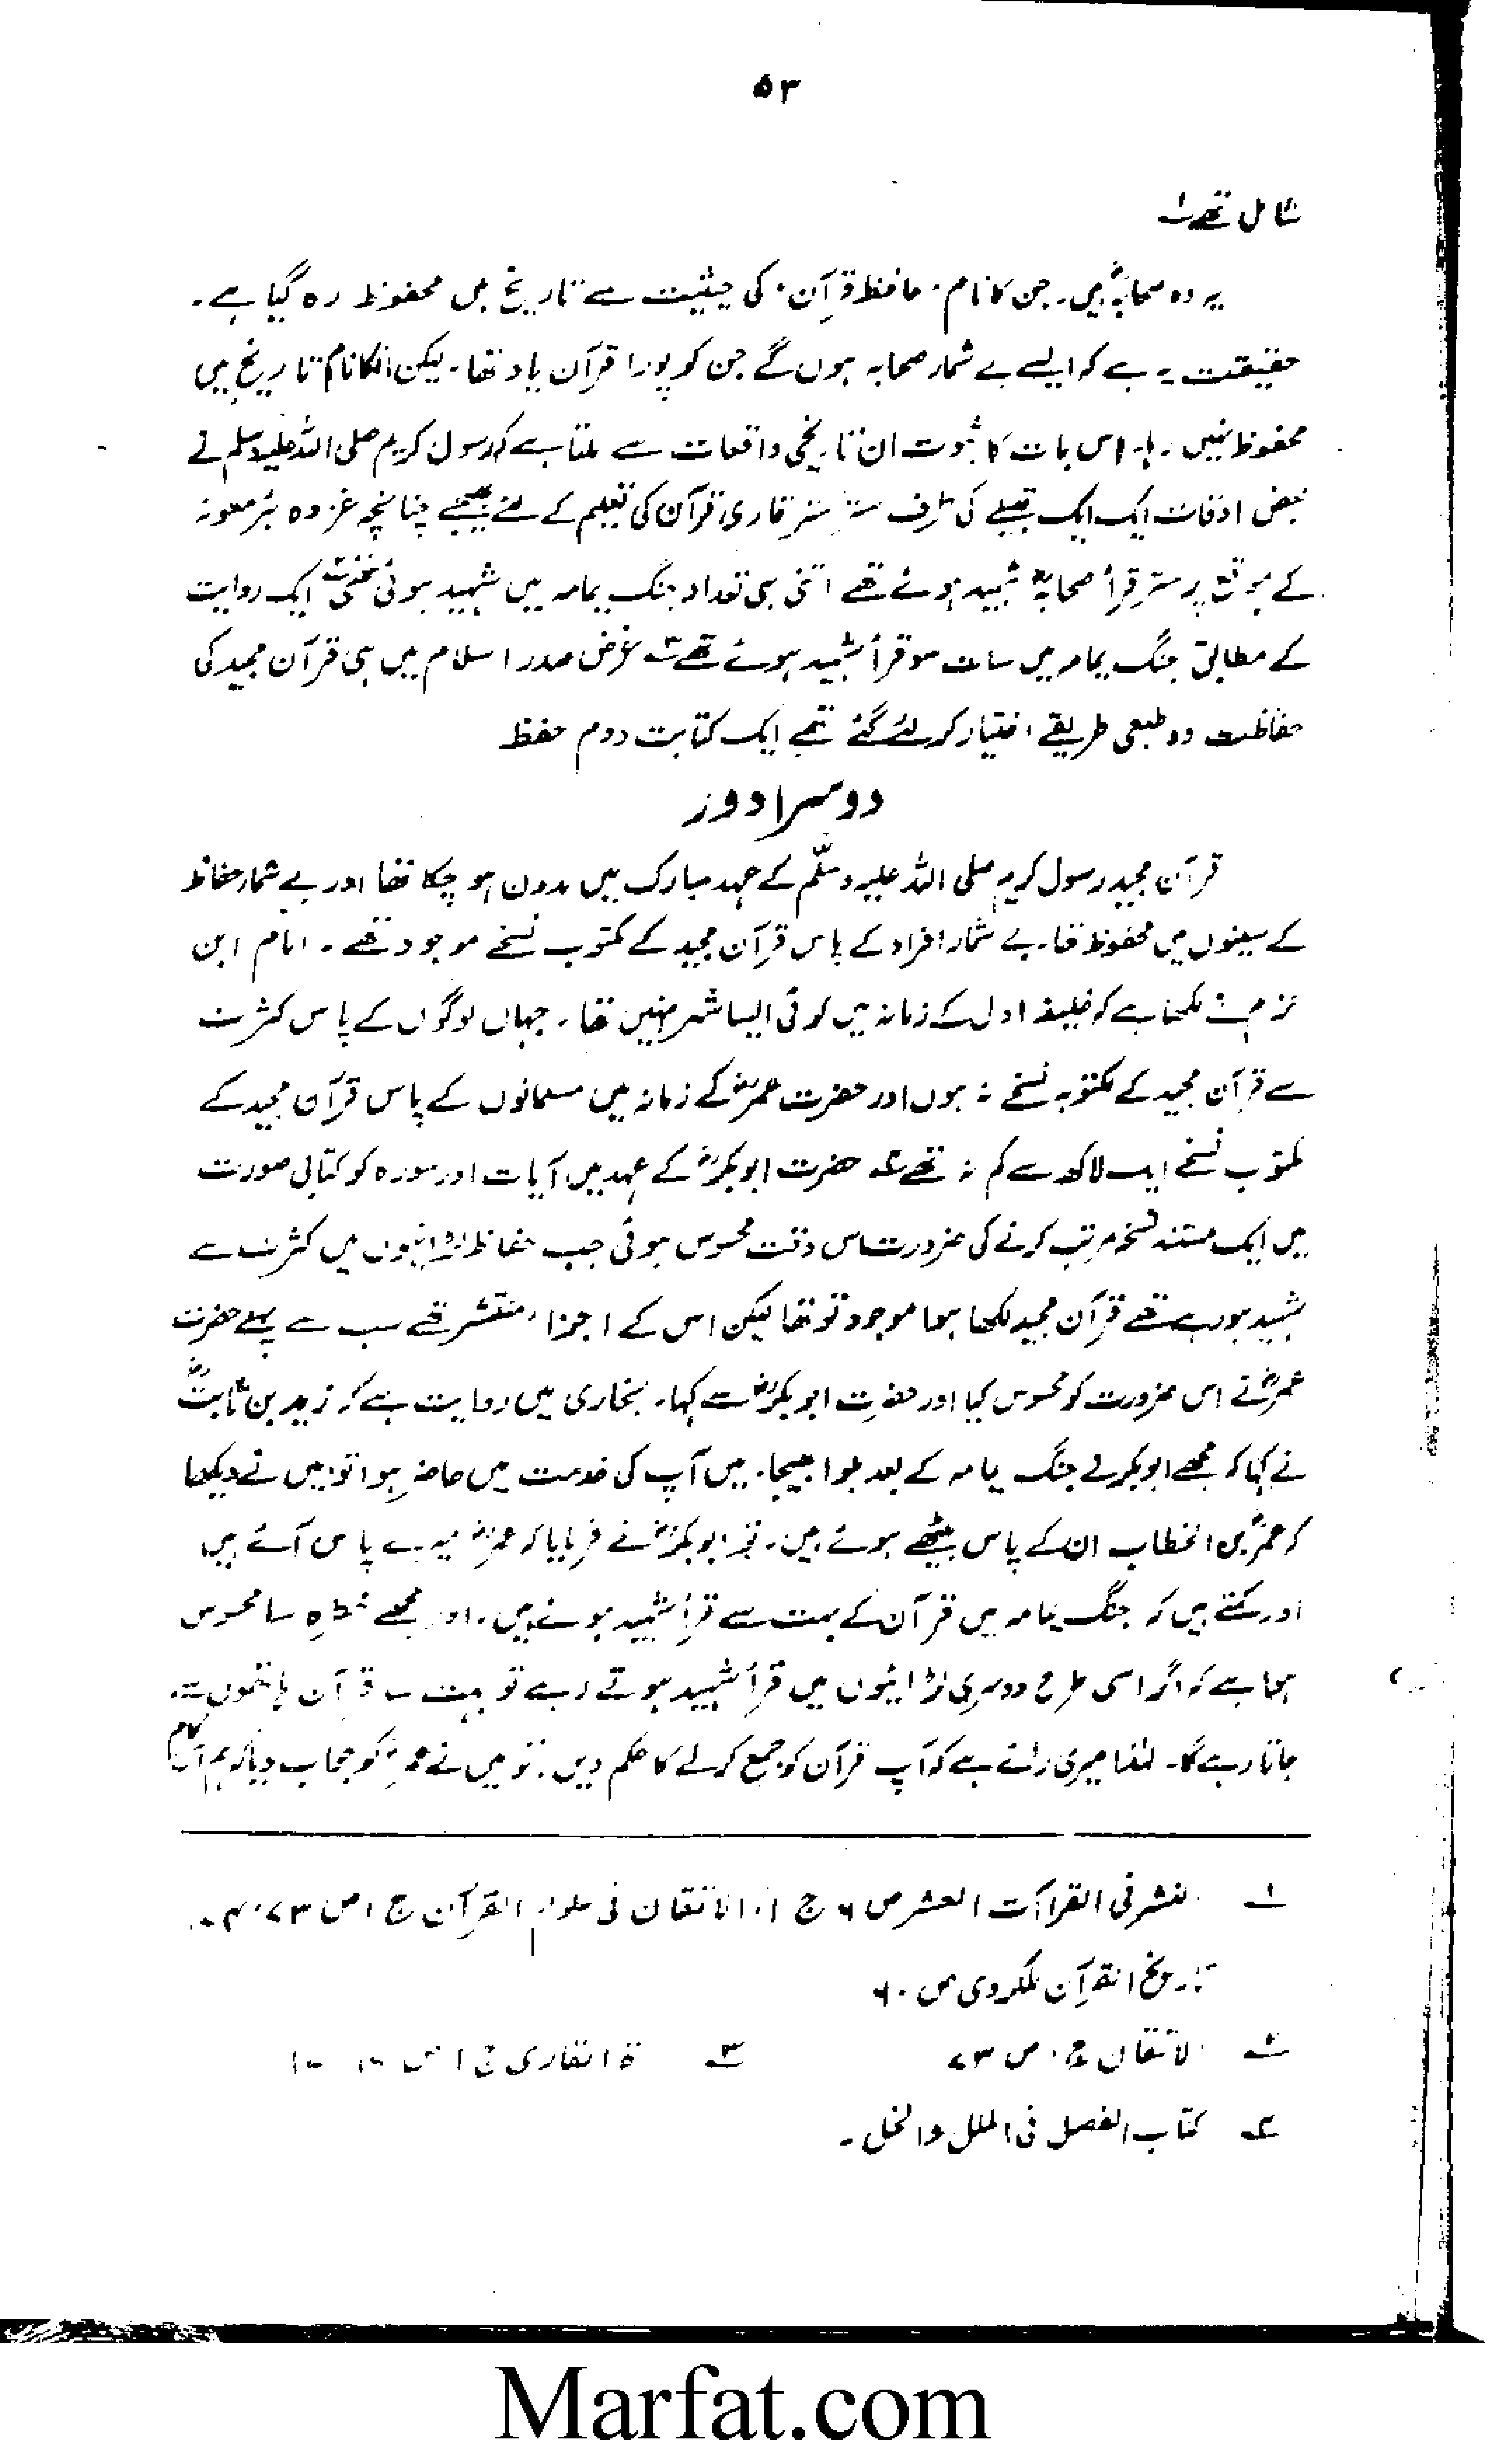 ۵۳
شامل تھے ۱
یہ وہ صحابہؓ ہیں۔ جن کا نام "حافظ قرآن" کی حیثیت سے تاریخ میں محفوظ رہ گیا ہے۔
حقیقت یہ ہے کہ ایسے بے شمار صحابہ ہوں گے جن کو پورا قرآن یاد تھا۔ لیکن انکا نام تاریخ میں
محفوظ نہیں رہا۔ اس بات کا ثبوت ان تاریخی واقعات سے ملتا ہے کہ رسول کریم صلی اللہ علیہ وسلم نے
بعض اوقات ایک ایک قبیلے کی طرف ستر ستر قاری قرآن کی تعلیم کے لئے بھیجے چنانچہ غزوہ بئر معونہ
کے موقع پر ستر قرأ صحابہؓ شہید ہوئے تھے اتنی ہی تعداد جنگ یمامہ میں شہید ہوئی تھی ۲ ایک روایت
کے مطابق جنگ یمامہ میں سات سو قرأ شہید ہوئے تھے ۳ غرض صدر اسلام میں ہی قرآن مجید کی
حفاظت دو طبعی طریقے اختیار کر لئے گئے تھے ایک کتابت دوم حفظ
دوسرا دور
قرآن مجید رسول کریم صلی اللہ علیہ وسلّم کے عہد مبارک میں مدون ہو چکا تھا اور بے شمار حفاظ
کے سینوں میں محفوظ تھا۔ بے شمار افراد کے پاس قرآن مجید کے مکتوب نسخے موجود تھے۔ امام ابن
حزم نے لکھا ہے کہ خلیفہ اول کے زمانہ میں کوئی ایسا شہر نہیں تھا۔ جہاں لوگوں کے پاس کثرت
سے قرآن مجید کے مکتوبہ نسخے نہ ہوں اور حضرت عمرؓ کے زمانہ میں مسلمانوں کے پاس قرآن مجید کے
مکتوب نسخے ایک لاکھ سے کم نہ تھے ۴ حضرت ابوبکرؓ کے عہد میں آیات اور سورہ کو کتابی صورت
میں ایک مستند نسخہ مرتب کرنے کی ضرورت اس وقت محسوس ہوئی جب حفاظ لڑائیوں میں کثرت سے
شہید ہو رہے تھے قرآن مجید لکھا ہوا موجود تو تھا لیکن اس کے اجزاء منتشر تھے سب سے پہلے حضرت
عمرؓ نے اس ضرورت کو محسوس کیا اور حضرت ابوبکرؓ سے کہا۔ بخاری میں روایت ہے کہ زید بن ثابتؓ
نے کہا کہ مجھے ابوبکر نے جنگ یمامہ کے بعد بلوا بھیجا۔ میں آپ کی خدمت میں حاضر ہوا تو میں نے دیکھا
کہ عمرؓ بن الخطاب ان کے پاس بیٹھے ہوئے ہیں۔ ابوبکرؓ نے فرمایا کہ عمرؓ میرے پاس آئے ہیں
اور کہتے ہیں کہ جنگ یمامہ میں قرآن کے بہت سے قرأ شہید ہوئے ہیں۔ اور مجھے خطرہ سا محسوس
ہوا ہے کہ اگر اسی طرح دوسری لڑائیوں میں قرأ شہید ہوتے رہے تو بہت سا قرآن ہاتھوں سے
جاتا رہے گا۔ لہٰذا میری رائے ہے کہ آپ قرآن کو جمع کرنے کا حکم دیں۔ تو میں نے عمرؓ کو جواب دیا کہ ہم
۱ النشر فی القرآت العشر ص ۶ ج ۱۔ الاتقان فی علوم القرآن ج ۱ ص ۷۳
تاریخ القرآن للکردی ص ۶۰
۲ الاتقان ج ۱ ص ۷۳
۳ القاری ج ۱ ص
۴ کتاب الفصل فی الملل والنحل۔
Marfat.com